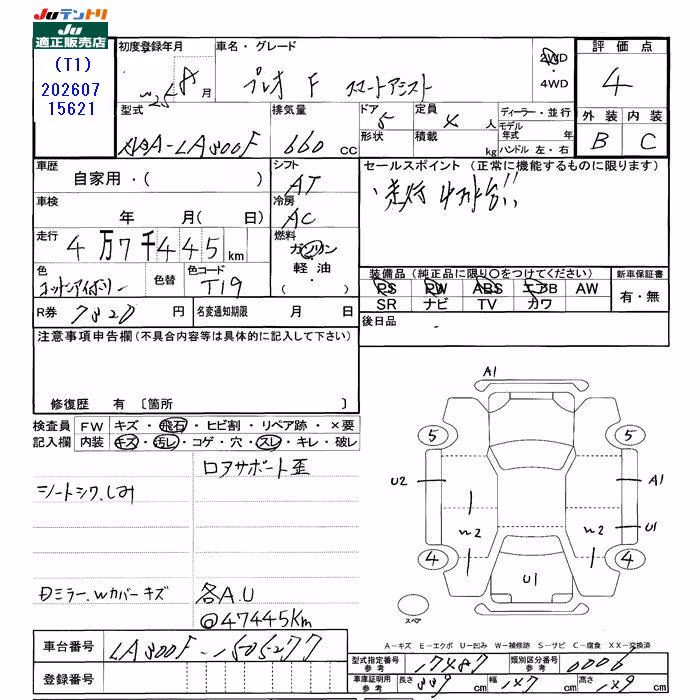 JUテントリ
JU
適正販売店
(T1)
202607
15621
初度登録年月
H25 8月
車名・グレード
プレオ F スマートアシスト
2WD
4WD
評価点
4
外装 内装
B C
型式
-LA300F
排気量
660 cc
ドア 5
形状
定員 4 人
積載 kg
ディーラー・並行
モデル年式 年
ハンドル 左・右
車歴
自家用・( )
シフト
AT
セールスポイント (正常に機能するものに限ります)
走行4万台!!
車検
年 月( 日)
冷房
AC
走行
4万7千445km
燃料
ガソリン
軽油・
( )
色
コットンアイボリー
色替
色コード
T19
装備品 (純正品に限り○をつけてください)
PS PW ABS エアB AW
SR ナビ TV カワ
新車保証書
有・無
R券 7820 円
名変通知期限 月 日
後日品
注意事項申告欄 (不具合内容等は具体的に記入して下さい)
修復歴 有 〔箇所 〕
検査員
記入欄
FW キズ・飛石・ヒビ割・リペア跡・×要
内装 キズ・汚レ・コゲ・穴・スレ・キレ・破レ
ロアサポート歪
シートシワ.しみ
Dミラー.Wカバーキズ
各A.U
@47445km
A1
5 5
U2 A1
U1
W2 W2
4 4
U1
スペア
A-キズ E-エクボ U-凹み W-補修跡 S-サビ C-腐食 XX-交換済
車台番号
LA300F-1505277
登録番号
型式指定番号
参考
17487
類別区分番号
参考
0006
車庫証明用
参考
長さ 339 cm
幅 147 cm
高さ 149 cm